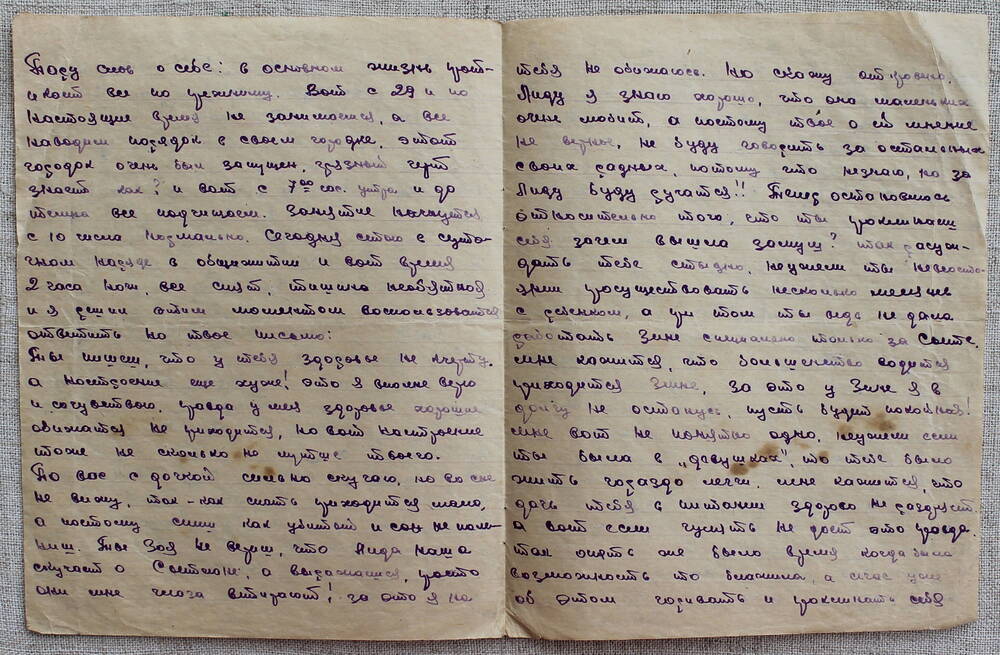 Пару слов о себе: в основном жизнь прот-
икает все по прежнему. Вот с 29 и по
настоящие время не занимаемся, а все
наводим порядок в своем городке, этот
городок очень был запущен, грязный черт
знает как? и вот с 7 00 час. утра и до
темна все подчищаем. Занятие начнутся
с 10 числа нормально. Сегодня стою в суто-
чном наряде в общижитии и вот время
2 часа ночи, все спят, тишина необятная
и я решил этим моментом воспользоватся
ответить на твое письмо:
Ты пишеш, что у тебя здоровье не к черту.
а настроение еще хуже! Это я вполне верю
и сочувствою, правда у меня здоровье хорошие
обижатся не приходится, но вот настроение
тоже не сколько не лутше твоего.
По вас с дочкой сильно скучаю, но во сне
не вижу, так-как спать приходится мало,
а поэтому спиш как убитый и сон не пом-
ниш. Ты Зоя не вериш, что Лида наша
скучает о Светлане, а выражаешся, просто
они мне глаза втирают! за это я на
тебя не обижаюсь. Но скажу откровено.
Лиду я знаю хорошо, что она маленьких
очень любит, а поэтому твое о ей мнение
не верное, не буду говорить за остальных
своих радных, потому что незнаю, но за
Лиду буду ручатся!! Тепер остановлюсь
относительно того, что ты проклинаеш
себя зачем вышла замуш? так расуж-
дать тебе стыдно, неужели ты невсосто-
янии просуществовать несколько месяцев
с ребенком, а при том ты ведь не дома
работать Зине специално только за Свете.
мне кажится, что большенство водится
приходится Зине, за это у Зине я в
долгу не останусь, пусть будит покойная!
мне вот не понятно одно, неужели если
ты была в „девушках", то тебе было
жить гораздо легчи. мне кажится, что
дочь тебя в питании здорово не
а вот если гулять не дает это правда
так опять же было время когда была
возможность то а сичас уже
об этом гаривать и проклинать себя